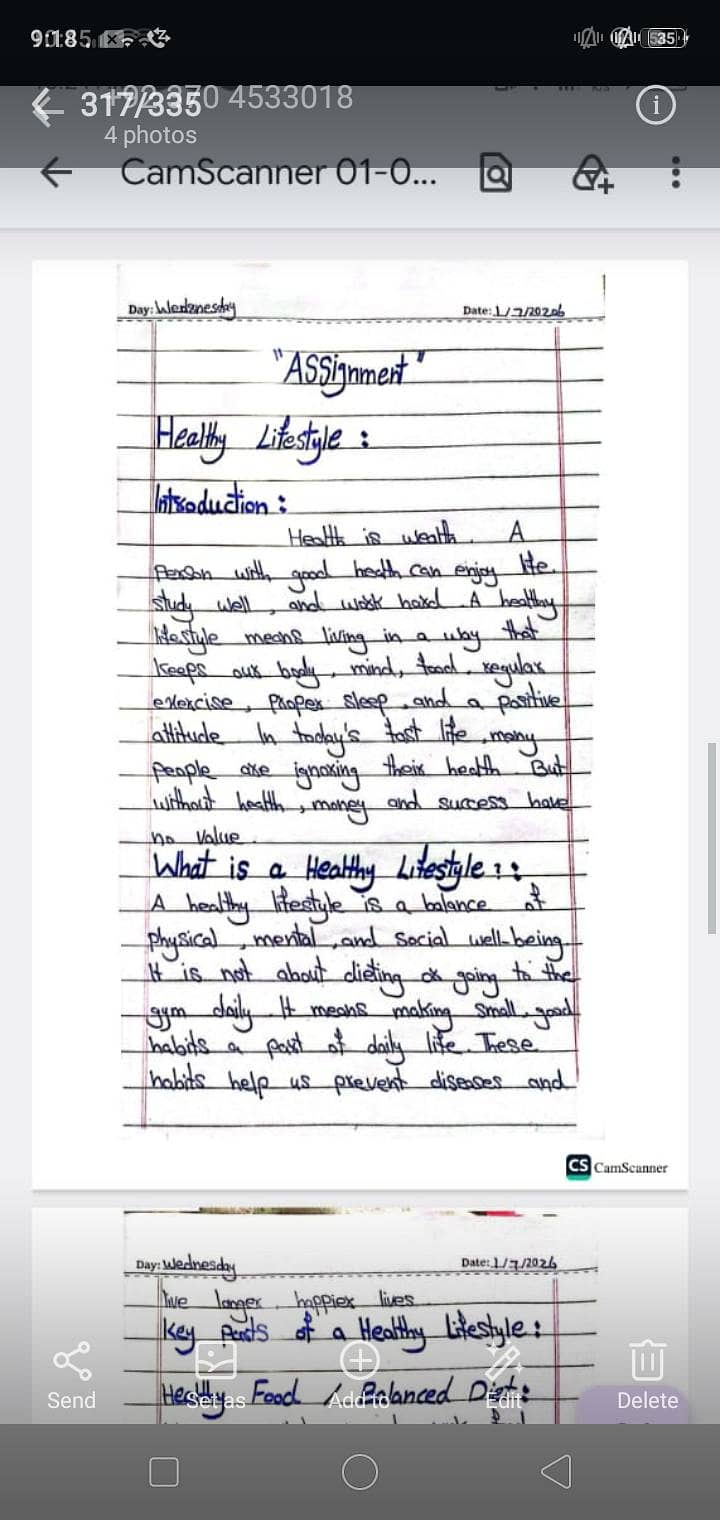 317/335
4 photos
CamScanner 01-0...
Day: Wednesday Date: 1/7/2026
"Assignment"
Healthy Lifestyle :
Introduction :
Health is wealth. A
person with good health can enjoy life.
study well, and work hard. A healthy
lifestyle means living in a way that
keeps our body, mind, food, regular
exercise, proper sleep, and a positive
attitude. In today's fast life, many
people are ignoring their health. But
without health, money and success have
no value.
What is a Healthy Lifestyle ? :
A healthy lifestyle is a balance of
physical, mental, and social well-being.
It is not about dieting or going to the
gym daily. It means making small, good
habits a part of daily life. These
habits help us prevent diseases and
CS CamScanner
Day: Wednesday Date: 1/7/2026
live longer, happier lives.
Key Parts of a Healthy Lifestyle :
Healthy Food / Balanced Diet :
Send Set as Add to Edit Delete